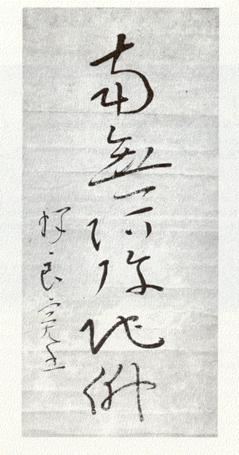 南無阿弥陀佛
釈良寛書